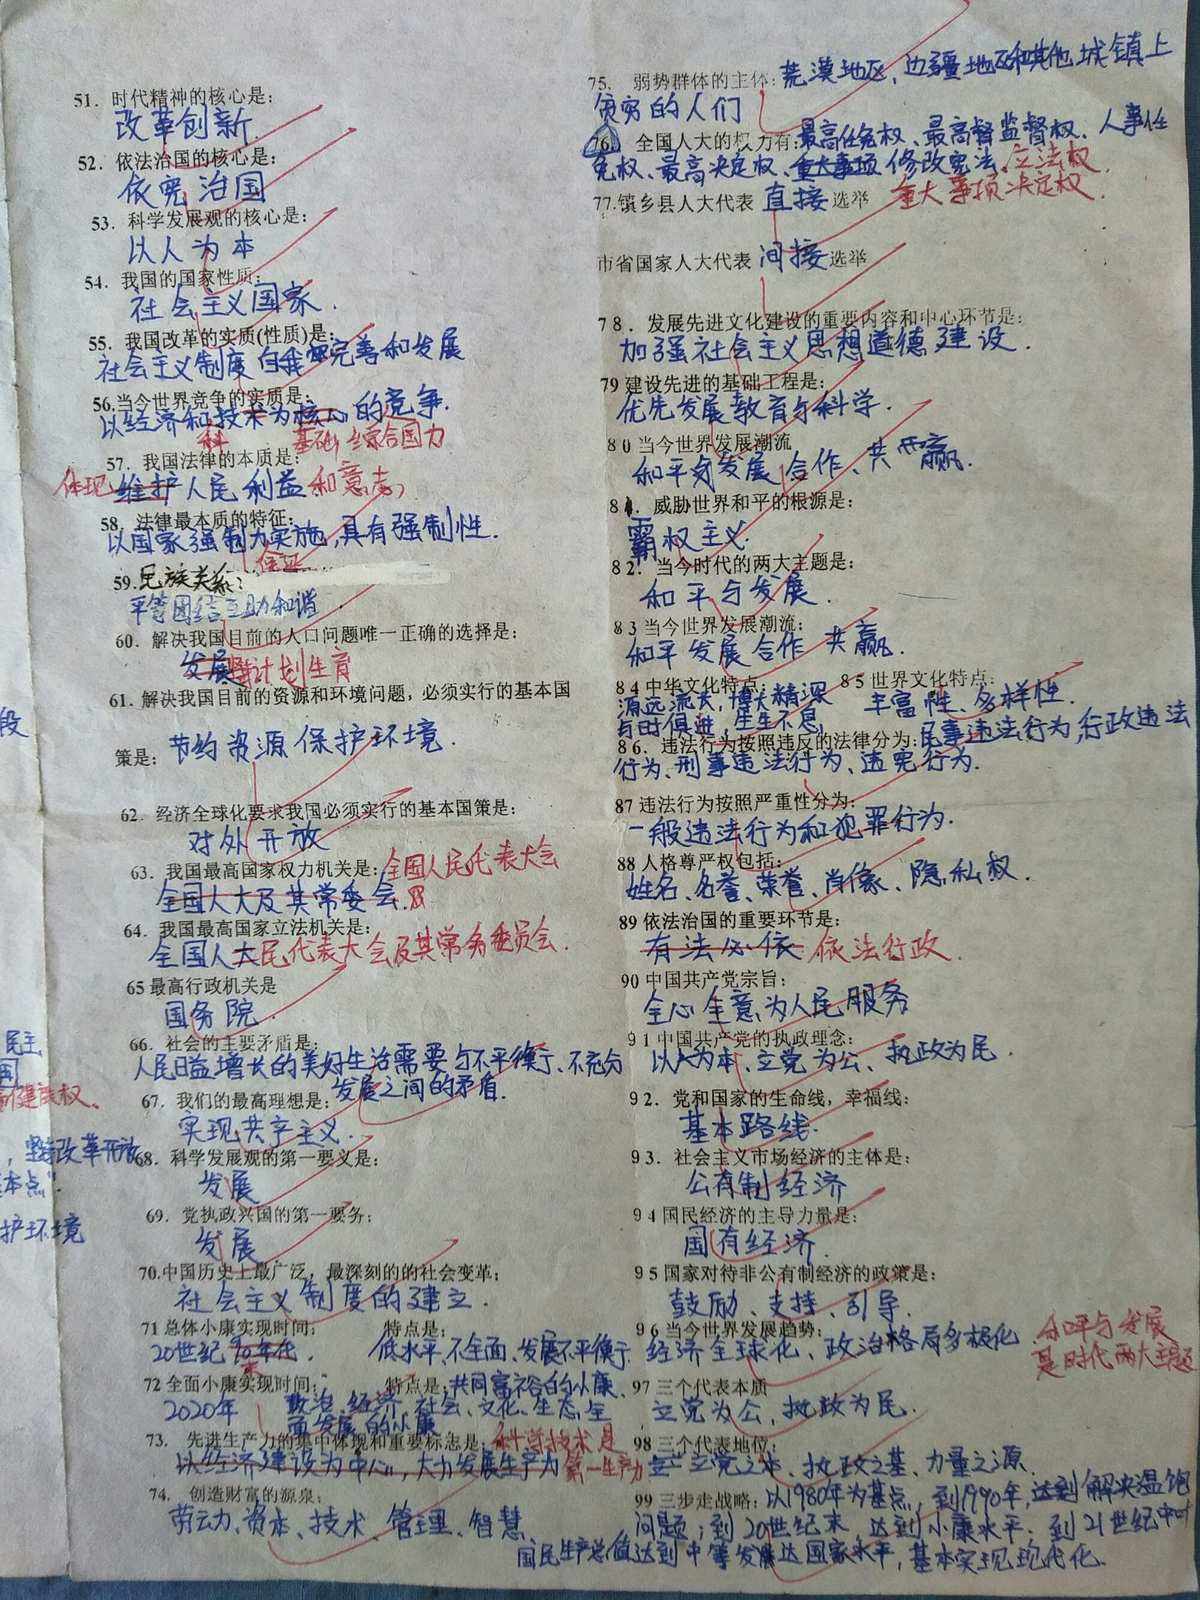 51．时代精神的核心是：
改革创新
52．依法治国的核心是：
依宪治国
53．科学发展观的核心是：
以人为本
54．我国的国家性质：
社会主义国家．
55．我国改革的实质(性质)是：
社会主义制度自我完善和发展
56.当今世界竞争的实质是：
以经济和技术为核心的竞争．
科 基础，综合国力
57．我国法律的本质是：
体现 维护人民利益 和意志
58．法律最本质的特征：
以国家强制力实施，具有强制性．
保证
59.民族关系：
平等团结互助和谐．
60．解决我国目前的人口问题唯一正确的选择是：
发展 计划生育
61．解决我国目前的资源和环境问题，必须实行的基本国
策是：节约资源 保护环境．
62．经济全球化要求我国必须实行的基本国策是：
对外开放
63．我国最高国家权力机关是：全国人民代表大会
全国人大及其常委会．
64．我国最高国家立法机关是：
全国人大民代表大会及其常务委员会．
65 最高行政机关是
国务院．
66．社会的主要矛盾是：
人民日益增长的美好生活需要与不平衡、不充分
发展之间的矛盾．
67．我们的最高理想是：
实现共产主义．
68．科学发展观的第一要义是：
发展
69．党执政兴国的第一要务：
发展
70.中国历史上最广泛，最深刻的的社会变革：
社会主义制度的建立．
71 总体小康实现时间： 特点是：
20世纪90年代． 低水平、不全面、发展不平衡
72 全面小康实现时间： 特点是：共同富裕的小康、
2020年 政治、经济、社会、文化、生态全
面发展的小康
73．先进生产力的集中体现和重要标志是：科学技术是
以"经济建设为中心"，大力发展生产力 第一生产力
74．创造财富的源泉：
劳动力、资本、技术、管理、智慧
75．弱势群体的主体：荒漠地区，边疆地区和其他城镇上
贫穷的人们
76．全国人大的权力有：最高任免权、最高督监督权、人事任
免权、最高决定权、重大事项 修改宪法、立法权
77.镇乡县人大代表 直接 选举 重大事项决定权．
市省国家人大代表 间接 选举
78．发展先进文化建设的重要内容和中心环节是：
加强社会主义思想道德建设．
79 建设先进的基础工程是：
优先发展教育与科学．
80 当今世界发展潮流
和平与发展 合作、共赢．
81．威胁世界和平的根源是：
霸权主义．
82．当今时代的两大主题是：
和平与发展．
83 当今世界发展潮流：
和平 发展 合作 共赢．
84 中华文化特点： 85 世界文化特点：
源远流长，博大精深 丰富性、多样性．
与时俱进，生生不息
86．违法行为按照违反的法律分为：民事违法行为，行政违法
行为、刑事违法行为、违宪行为．
87 违法行为按照严重性分为：
一般违法行为和犯罪行为．
88 人格尊严权包括：
姓名、名誉、荣誉、肖像、隐私权．
89 依法治国的重要环节是：
有法必依 依法行政．
90 中国共产党宗旨：
全心全意为人民服务
91 中国共产党的执政理念：
以人为本、立党为公、执政为民．
92．党和国家的生命线，幸福线：
基本路线．
93．社会主义市场经济的主体是：
公有制经济
94 国民经济的主导力量是：
国有经济．
95 国家对待非公有制经济的政策是：
鼓励、支持、引导．
96 当今世界发展趋势：
经济全球化、政治格局多极化 和平与发展
是时代两大主题
97 三个代表本质
立党为公，执政为民．
98 三个代表地位：
立党之本、执政之基、力量之源．
99 三步走战略：以1980年为基点，到1990年，达到解决温饱
问题；到20世纪末 达到小康水平；到21世纪中叶
国民生产总值达到中等发展达国家水平，基本实现现代化．
段
民主
国
建议权、
，坚持改革开放
基本点"
护环境